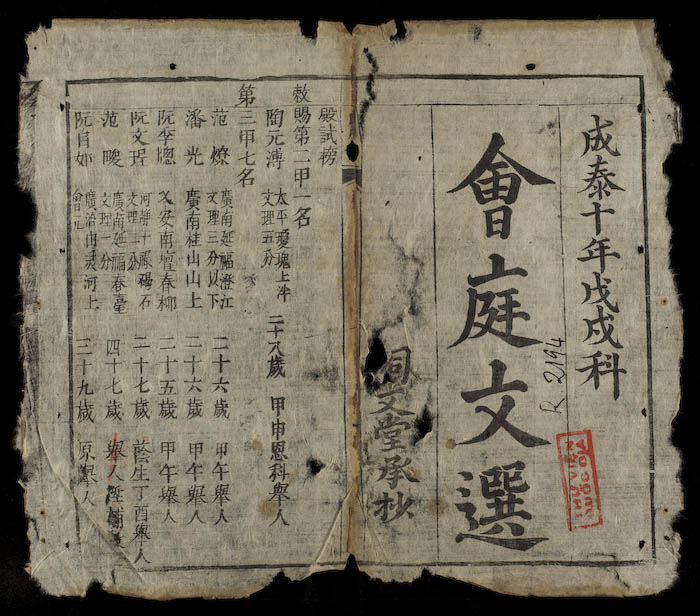 成泰十年戊戌科
會庭文選
同文堂承抄
R 2194
殿試榜
敕賜第二甲一名
陶元溥 太平瓊瑰上泮 文理五分 二十八歲 甲申恩科舉人
第三甲七名
范燎 廣南延福澄江 文理三分以下 二十六歲 甲午舉人
潘光 廣南桂山山上 二十六歲 甲午舉人
阮李 乂安南壇春柳 二十五歲 甲午舉人
阮文珵 河靜十 碣石 文理二分 二十七歲 蔭生丁酉舉人
范晙 廣南延福春臺 文理一分 四十七歲 舉人
阮自如 廣治 灵河上 會元 三十九歲 原舉人